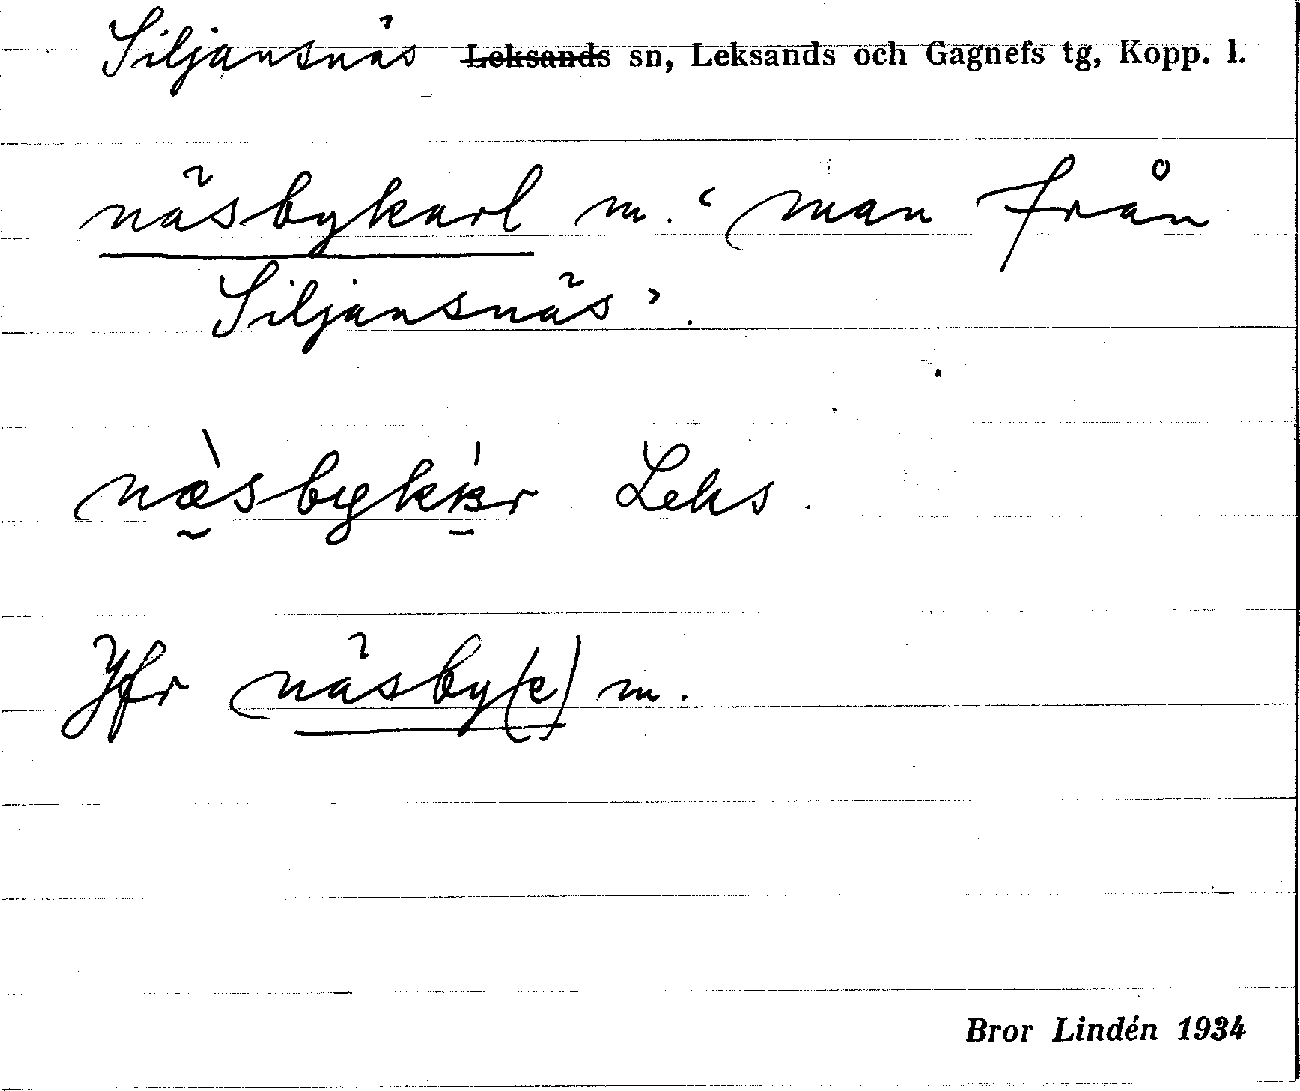 Siljansnäs ~~Leksands~~ sn, Leksands och Gagnefs tg, Kopp. l.
näsbykarl m. ‘man från
Siljansnäs’.
Leks.
Jfr näsby(e) m.
Bror Lindén 1934